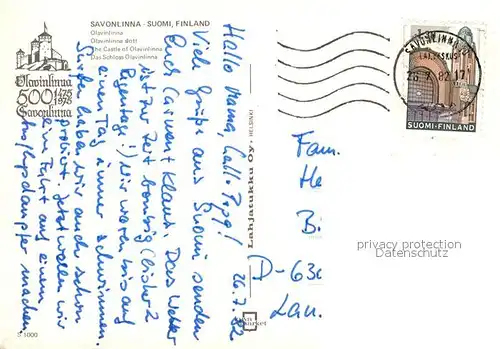 SAVONLINNA - SUOMI, FINLAND
Olavinlinna
Olavinlinna slott
The Castle of Olavinlinna
Das Schloss Olavinlinna
Olavinlinna
500 1475 1975
Savonlinna
Hallo Mama, hallo Papa!
26.7.82
Viele Grüße aus Suomi senden
Euch Carmen + Klaus. Das Wetter
ist zur Zeit bombig (bisher 2
Regentage!) Wir waren bis auf
einen Tag immer schwimmen.
Surfen haben wir auch schon
probiert. Jetzt wollen wir
eine Fahrt auf einem
dampfer machen
Lahjatukku Oy. HELSINKI
S 1000
SAVONLINNA
26.7.82.17
SUOMI-FINLAND
Fam.
He
Bi
D-63
Lau.
privacy protection
Datenschutz